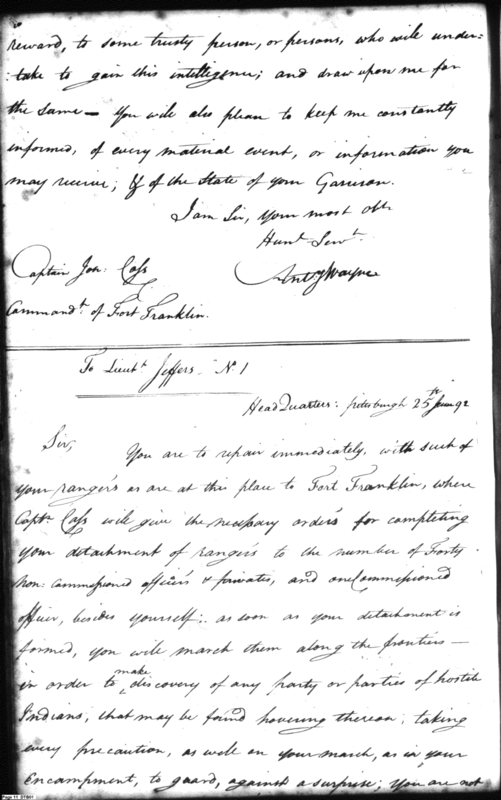 reward, to some trusty person, or persons, who will under-
take to gain this intelligence; and draw upon me for
the same — You will also please to keep me constantly
informed, of every material event, or information you
may receive; & of the State of your Garrison.
I am Sir, your most obt
Hum.l Serv.t
Ant.y Wayne
Captain Jon: Cass
Command.t of Fort Franklin.
To Lieut.t Jeffers - No. 1
Head Quarters: pitsburgh 25th June 92
Sir,
You are to repair immediately, with such of
your rangers as are at this place to Fort Franklin, where
Capt.n Cass will give the necessary orders for completing
your detachment of rangers to the number of Forty
Non: commissioned officers & privates, and one Commissioned
officer, besides yourself; as soon as your detachment is
formed, you will march them along the frontiers —
in order to make discovery of any party or parties of hostile
Indians, that may be found hovering thereon; taking
every precaution, as well on your march, as in your
Encampment, to guard, against a surprise; You are not